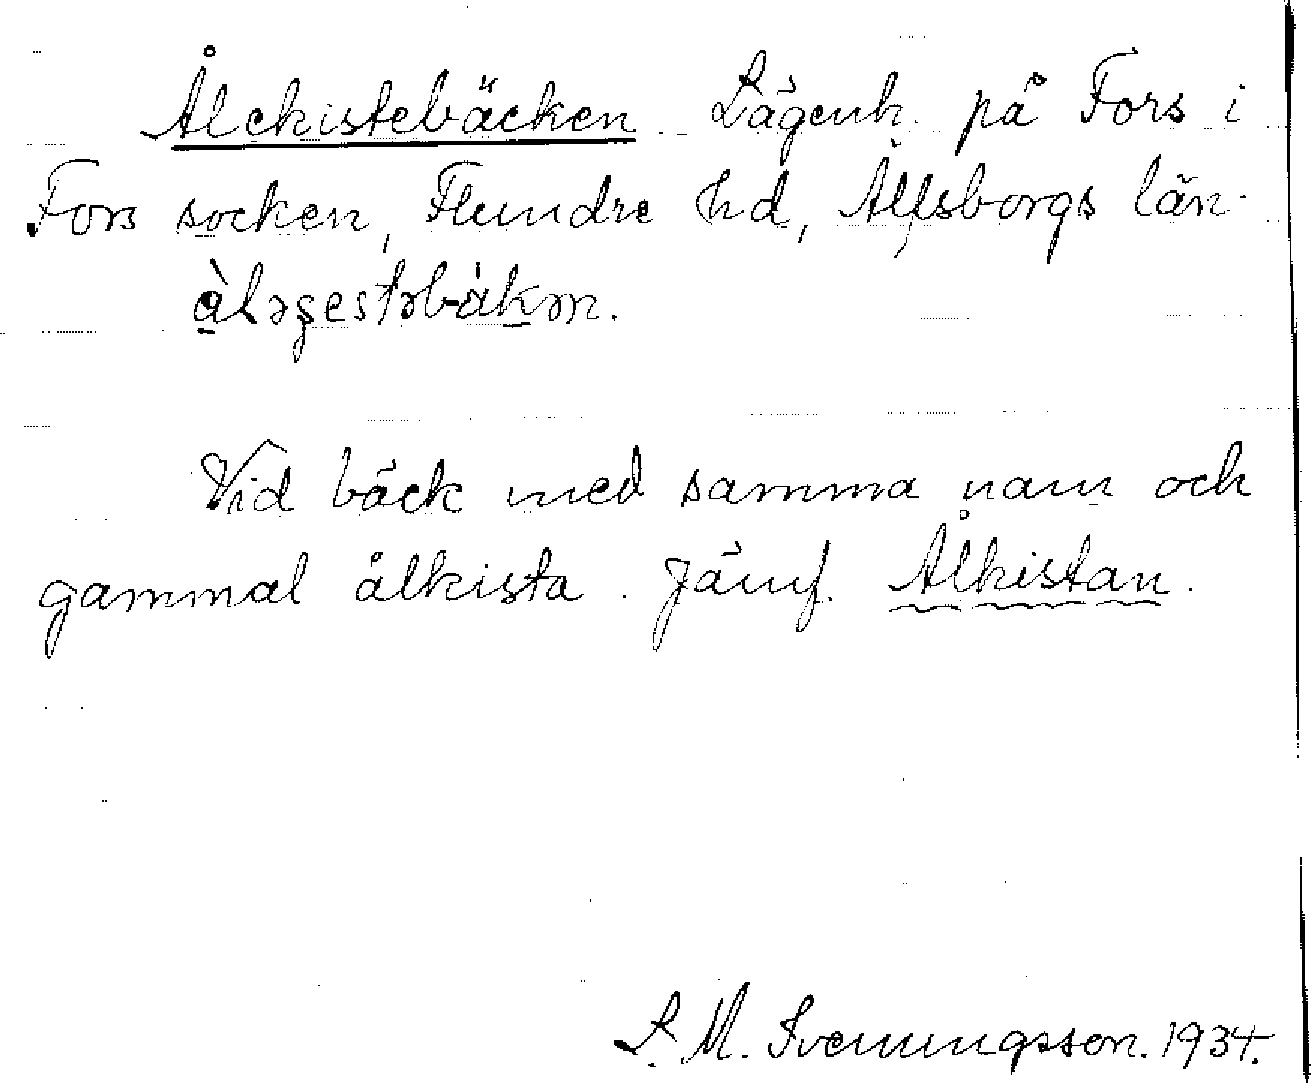 Ålekistebäcken Lägenh. på Fors i
Fors socken, Flundre hd, Älfsborgs län.
Vid bäck med samma namn och
gammal ålkista. Jämf. Ålkistan.
L. M. Svenungsson. 1934.